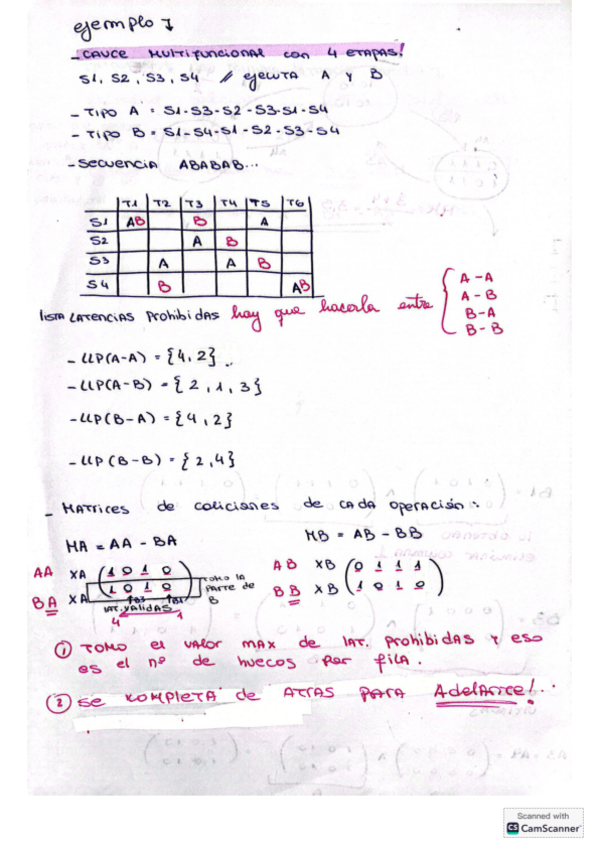 ejemplo 1
- CAUCE MULTIFUNCIONAL con 4 ETAPAS!
S1, S2, S3, S4 // EJECUTA A y B
- TIPO A = S1-S3-S2-S3-S1-S4
- TIPO B = S1-S4-S1-S2-S3-S4
- SECUENCIA ABABAB...
T1 T2 T3 T4 T5 T6
S1 AB B A
S2 A B
S3 A A B
S4 B AB
LISTA LATENCIAS PROHIBIDAS hay que hacerla entre { A-A
A-B
B-A
B-B
- LLP(A-A) = {4,2}..
- LLP(A-B) = {2,1,3}
- LLP(B-A) = {4,2}
- LLP(B-B) = {2,4}
- MATRICES de coliciones de cada operación:
MA = AA - BA MB = AB - BB
AA XA (1 0 1 0) AB XB (0 1 1 1)
BA XA (1 0 1 0) TOMO LA PARTE DE B BB XB (1 0 1 0)
LAT. VALIDAS
4 1
① TOMO el VALOR MAX de LAT. Prohibidas Y eso
es el nº de huecos por fila.
② Se KOMPLETA de ATRAS PARA Adelante!..
Scanned with
CS CamScanner